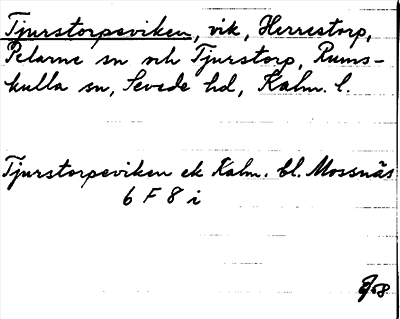 Tjurstorpsviken, vik, Herrestorp,
Pelarne sn och Tjurstorp, Rums-
kulla sn, Sevede hd, Kalm. l.
Tjurstorpsviken ek Kalm. bl. Mossnäs
6 F 8 i